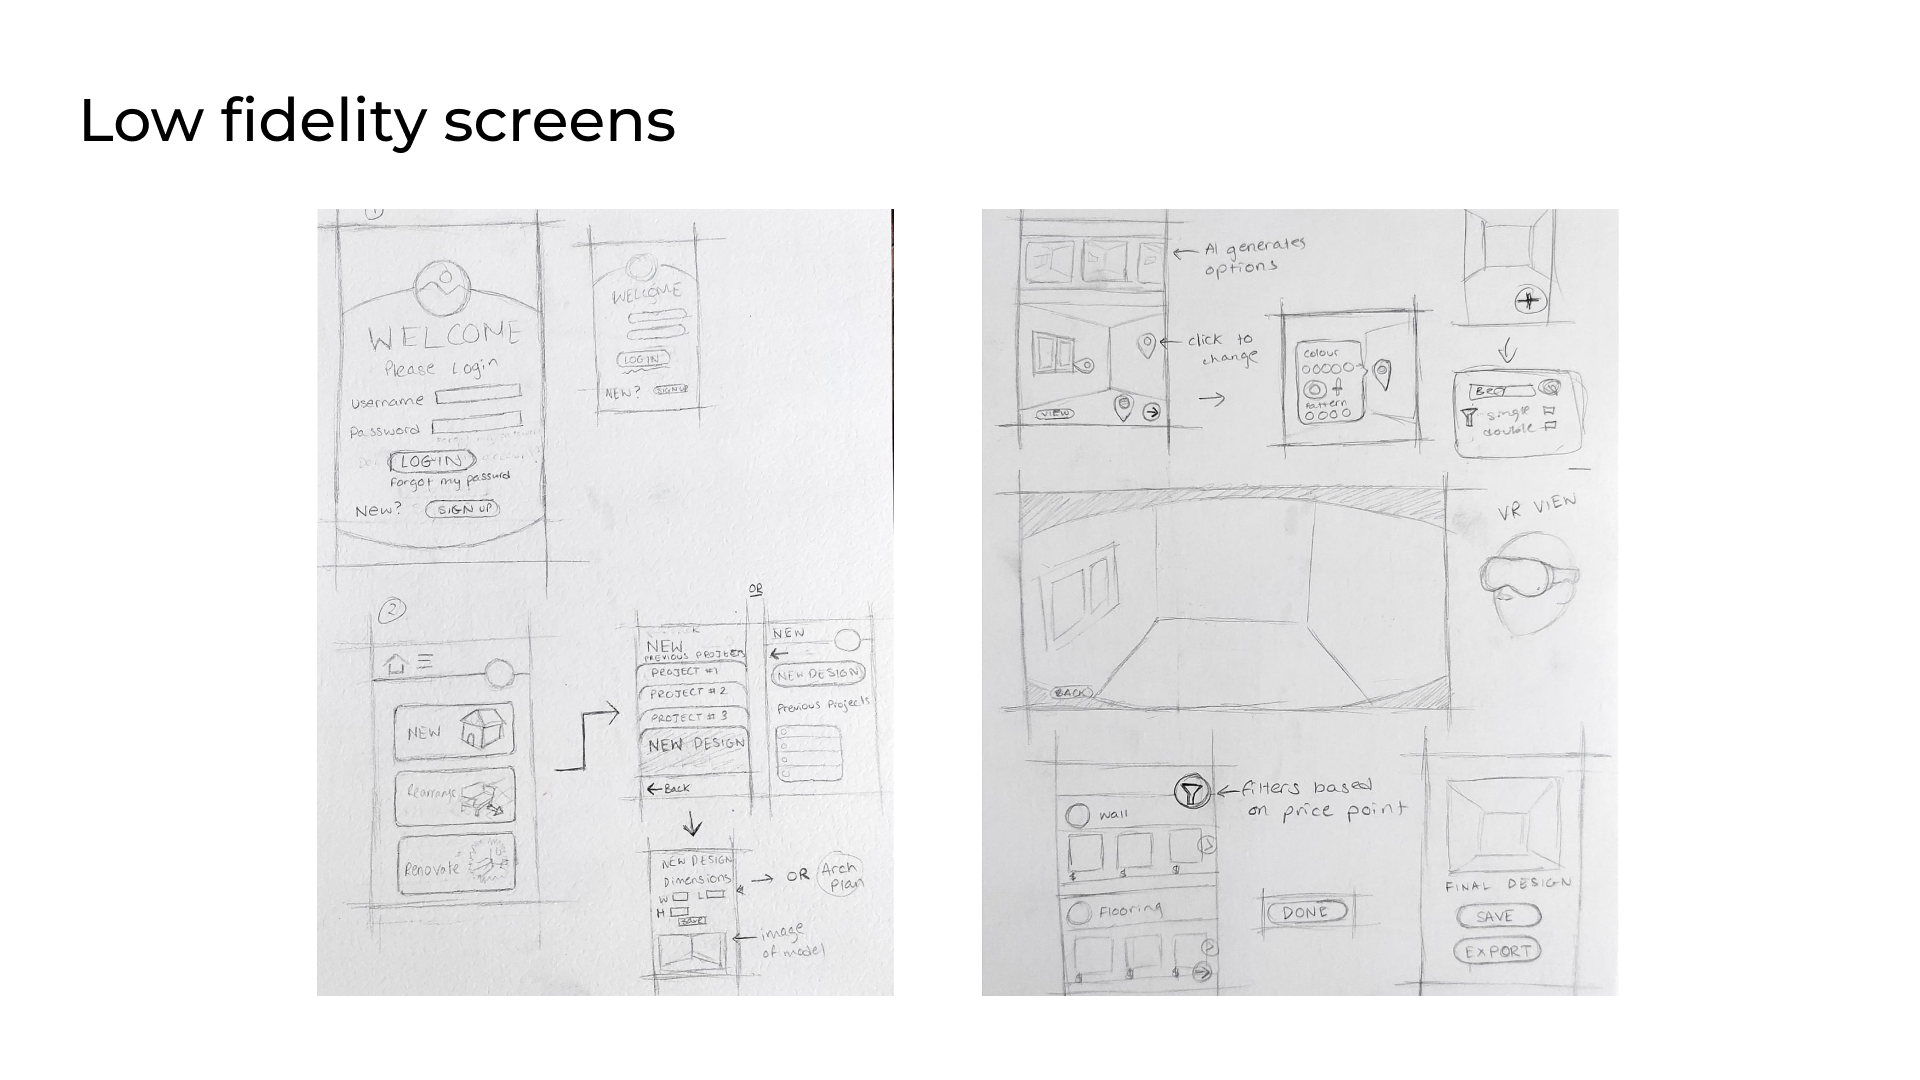 Low fidelity screens
1
WELCOME
Please Login
Username
Password
LOGIN
Forgot my passwrd
New? SIGN UP
WELCOME
LOGIN
NEW? SIGNUP
2
NEW
Rearrange
Renovate
OR
NEW
PREVIOUS PROJECTS
PROJECT #1
PROJECT #2
PROJECT # 3
NEW DESIGN
← Back
NEW
NEW DESIGN
Previous Projects
NEW DESIGN
Dimensions
W L
H
SAVE
→ OR Arch
Plan
← image
of model
← AI generates
options
← click to
change
VIEW
Colour
Pattern
BED
single
double
VR VIEW
BACK
← Filters based
on price point
Wall
$ $ $
Flooring
$ $ $
DONE
FINAL DESIGN
SAVE
EXPORT